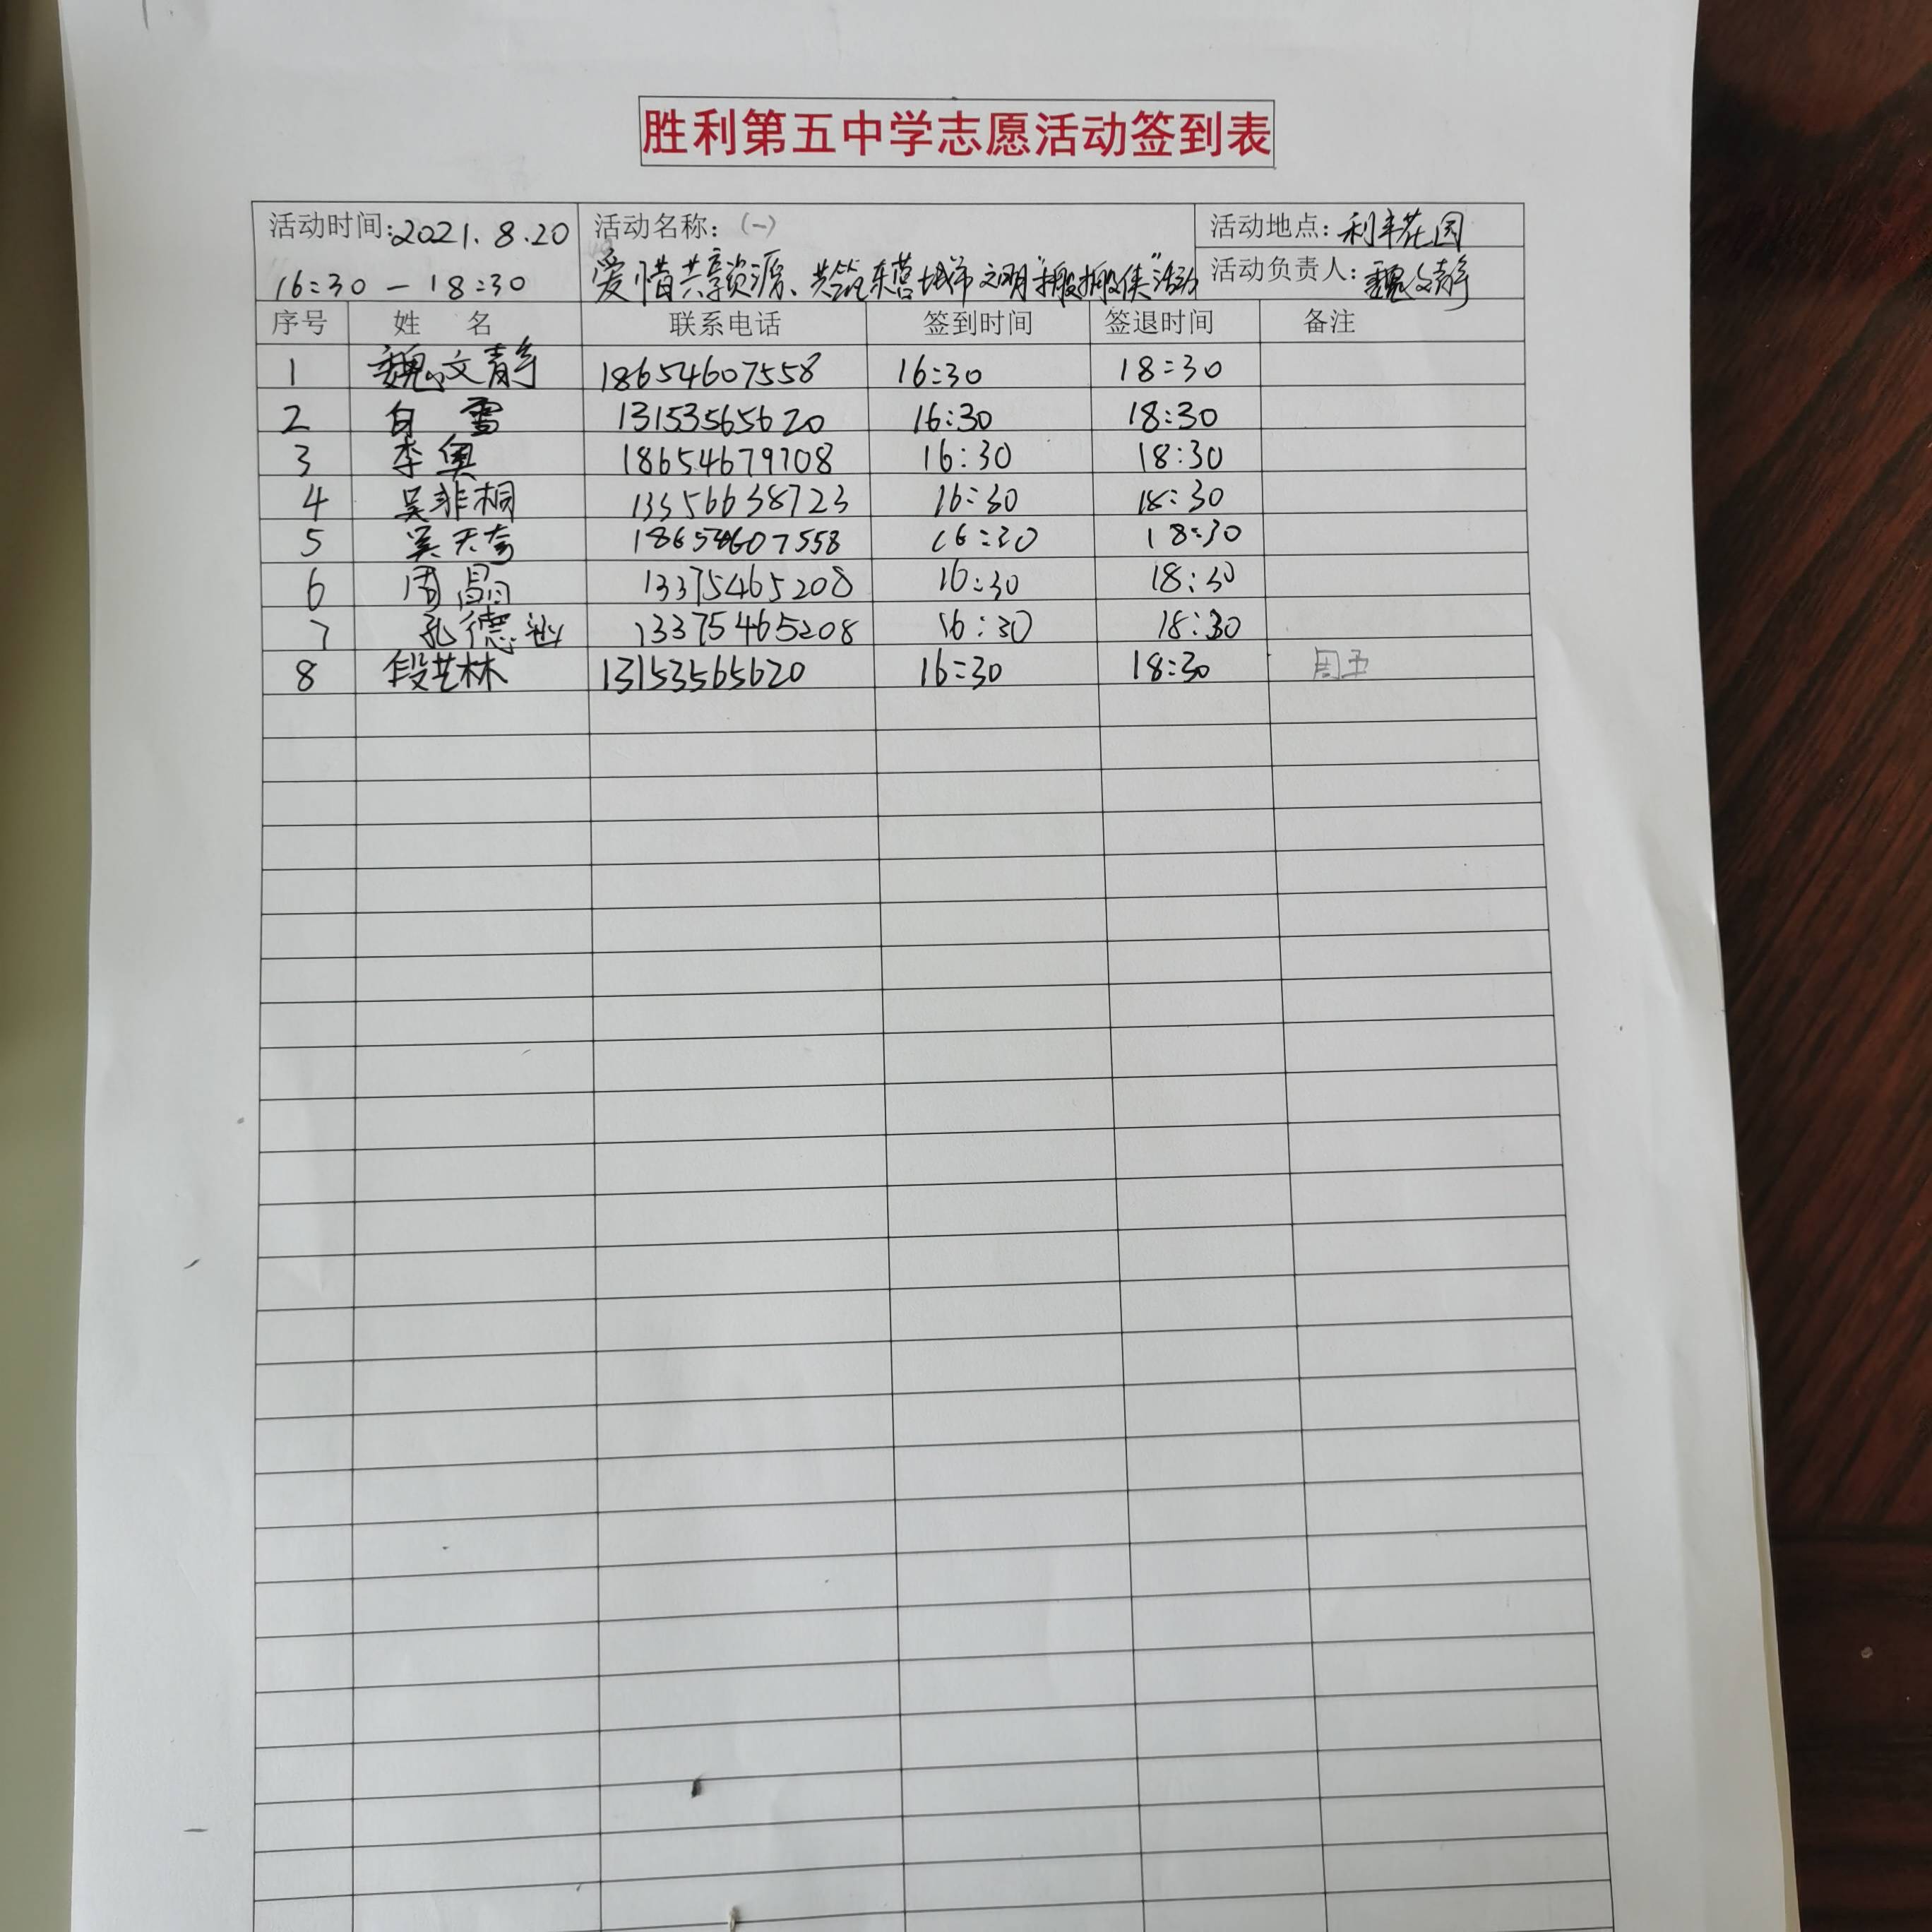 胜利第五中学志愿活动签到表
活动时间:2021.8.20 活动名称:(一) 活动地点:利丰花园
16:30 — 18:30 爱惜共享资源、共筑东营城市文明"搬搬侠"活动 活动负责人:魏文静
序号 姓 名 联系电话 签到时间 签退时间 备注
1 魏文静 18654607558 16:30 18:30
2 白雪 13153565620 16:30 18:30
3 李奥 18654679708 16:30 18:30
4 吴非桐 13356638723 16:30 18:30
5 吴天奇 18654607558 16:30 18:30
6 周晶 13375465208 16:30 18:30
7 孔德 13375465208 16:30 18:30
8 段艺林 13153565620 16:30 18:30 周五